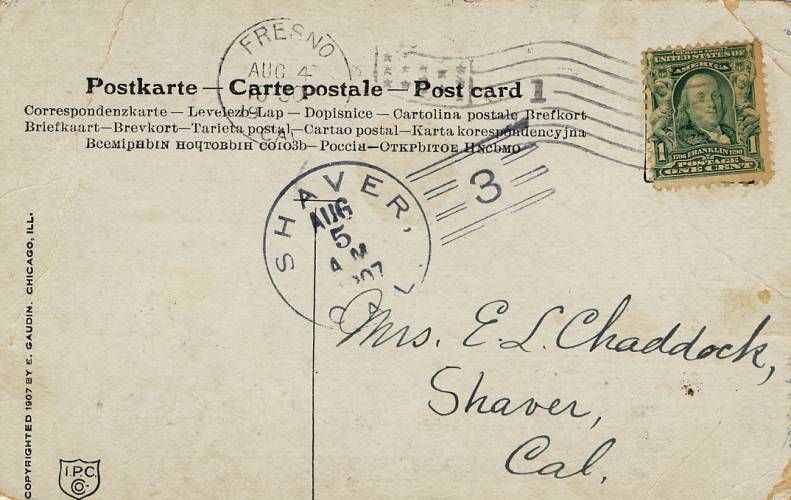 FRESNO
AUG 4
CAL.
1
Postkarte — Carte postale — Post card
Correspondenzkarte — Levelezö-Lap — Dopisnice — Cartolina postale Brefkort
Briefkaart—Brevkort—Tarieta postal—Cartao postal—Karta korespondencyjna
Всемiрвıи
союзь—Россiи—Открытое
SERIES 1902
UNITED STATES OF
AMERICA
1 1706 FRANKLIN 1790 1
POSTAGE
ONE CENT
3
SHAVER,
AUG
5
A M
1907
CAL.
Mrs. E. L. Chaddock,
Shaver,
Cal.
COPYRIGHTED 1907 BY E. GAUDIN. CHICAGO, ILL.
I.P.C.
Co.